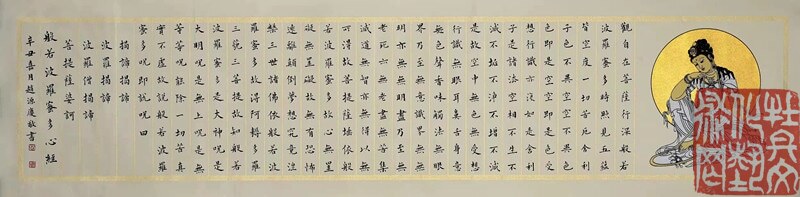 觀自在菩薩行深般若
波羅蜜多時照見五蘊
皆空度一切苦厄舍利
子色不異空空不異色
色即是空空即是色受
想行識亦復如是舍利
子是諸法空相不生不
滅不垢不淨不增不減
是故空中無色無受想
行識無眼耳鼻舌身意
無色聲香味觸法無眼
界乃至無意識界無無
明亦無無明盡乃至無
老死亦無老死盡無苦集
滅道無智亦無得以無
所得故菩提薩埵依般
若波羅蜜多故心無罣
礙無罣礙故無有恐怖
遠離顛倒夢想究竟涅
槃三世諸佛依般若波
羅蜜多故得阿耨多羅
三藐三菩提故知般若
波羅蜜多是大神呪是
大明呪是無上呪是無
等等呪能除一切苦真
實不虛故說般若波羅
蜜多呪即說呪曰
揭諦揭諦
波羅揭諦
波羅僧揭諦
菩提薩婆訶
般若波羅蜜多心經
辛丑春月趙德慶敬書